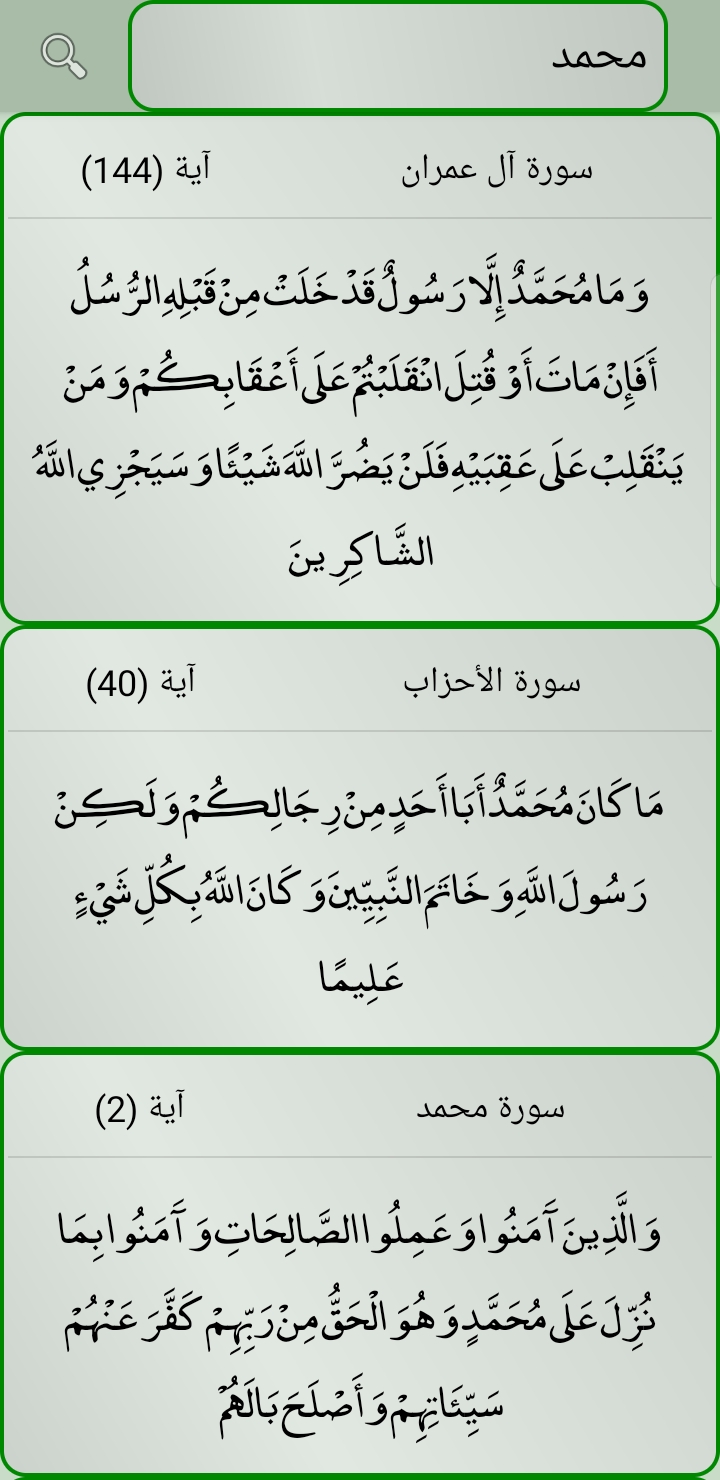 محمد
سورة آل عمران آية (144)
وَمَا مُحَمَّدٌ إِلَّا رَسُولٌ قَدْ خَلَتْ مِنْ قَبْلِهِ الرُّسُلُ
أَفَإِنْ مَاتَ أَوْ قُتِلَ انْقَلَبْتُمْ عَلَى أَعْقَابِكُمْ وَمَنْ
يَنْقَلِبْ عَلَى عَقِبَيْهِ فَلَنْ يَضُرَّ اللَّهَ شَيْئًا وَسَيَجْزِي اللَّهُ
الشَّاكِرِينَ
سورة الأحزاب آية (40)
مَا كَانَ مُحَمَّدٌ أَبَا أَحَدٍ مِنْ رِجَالِكُمْ وَلَكِنْ
رَسُولَ اللَّهِ وَخَاتَمَ النَّبِيِّينَ وَكَانَ اللَّهُ بِكُلِّ شَيْءٍ
عَلِيمًا
سورة محمد آية (2)
وَالَّذِينَ آَمَنُوا وَعَمِلُوا الصَّالِحَاتِ وَآَمَنُوا بِمَا
نُزِّلَ عَلَى مُحَمَّدٍ وَهُوَ الْحَقُّ مِنْ رَبِّهِمْ كَفَّرَ عَنْهُمْ
سَيِّئَاتِهِمْ وَأَصْلَحَ بَالَهُمْ